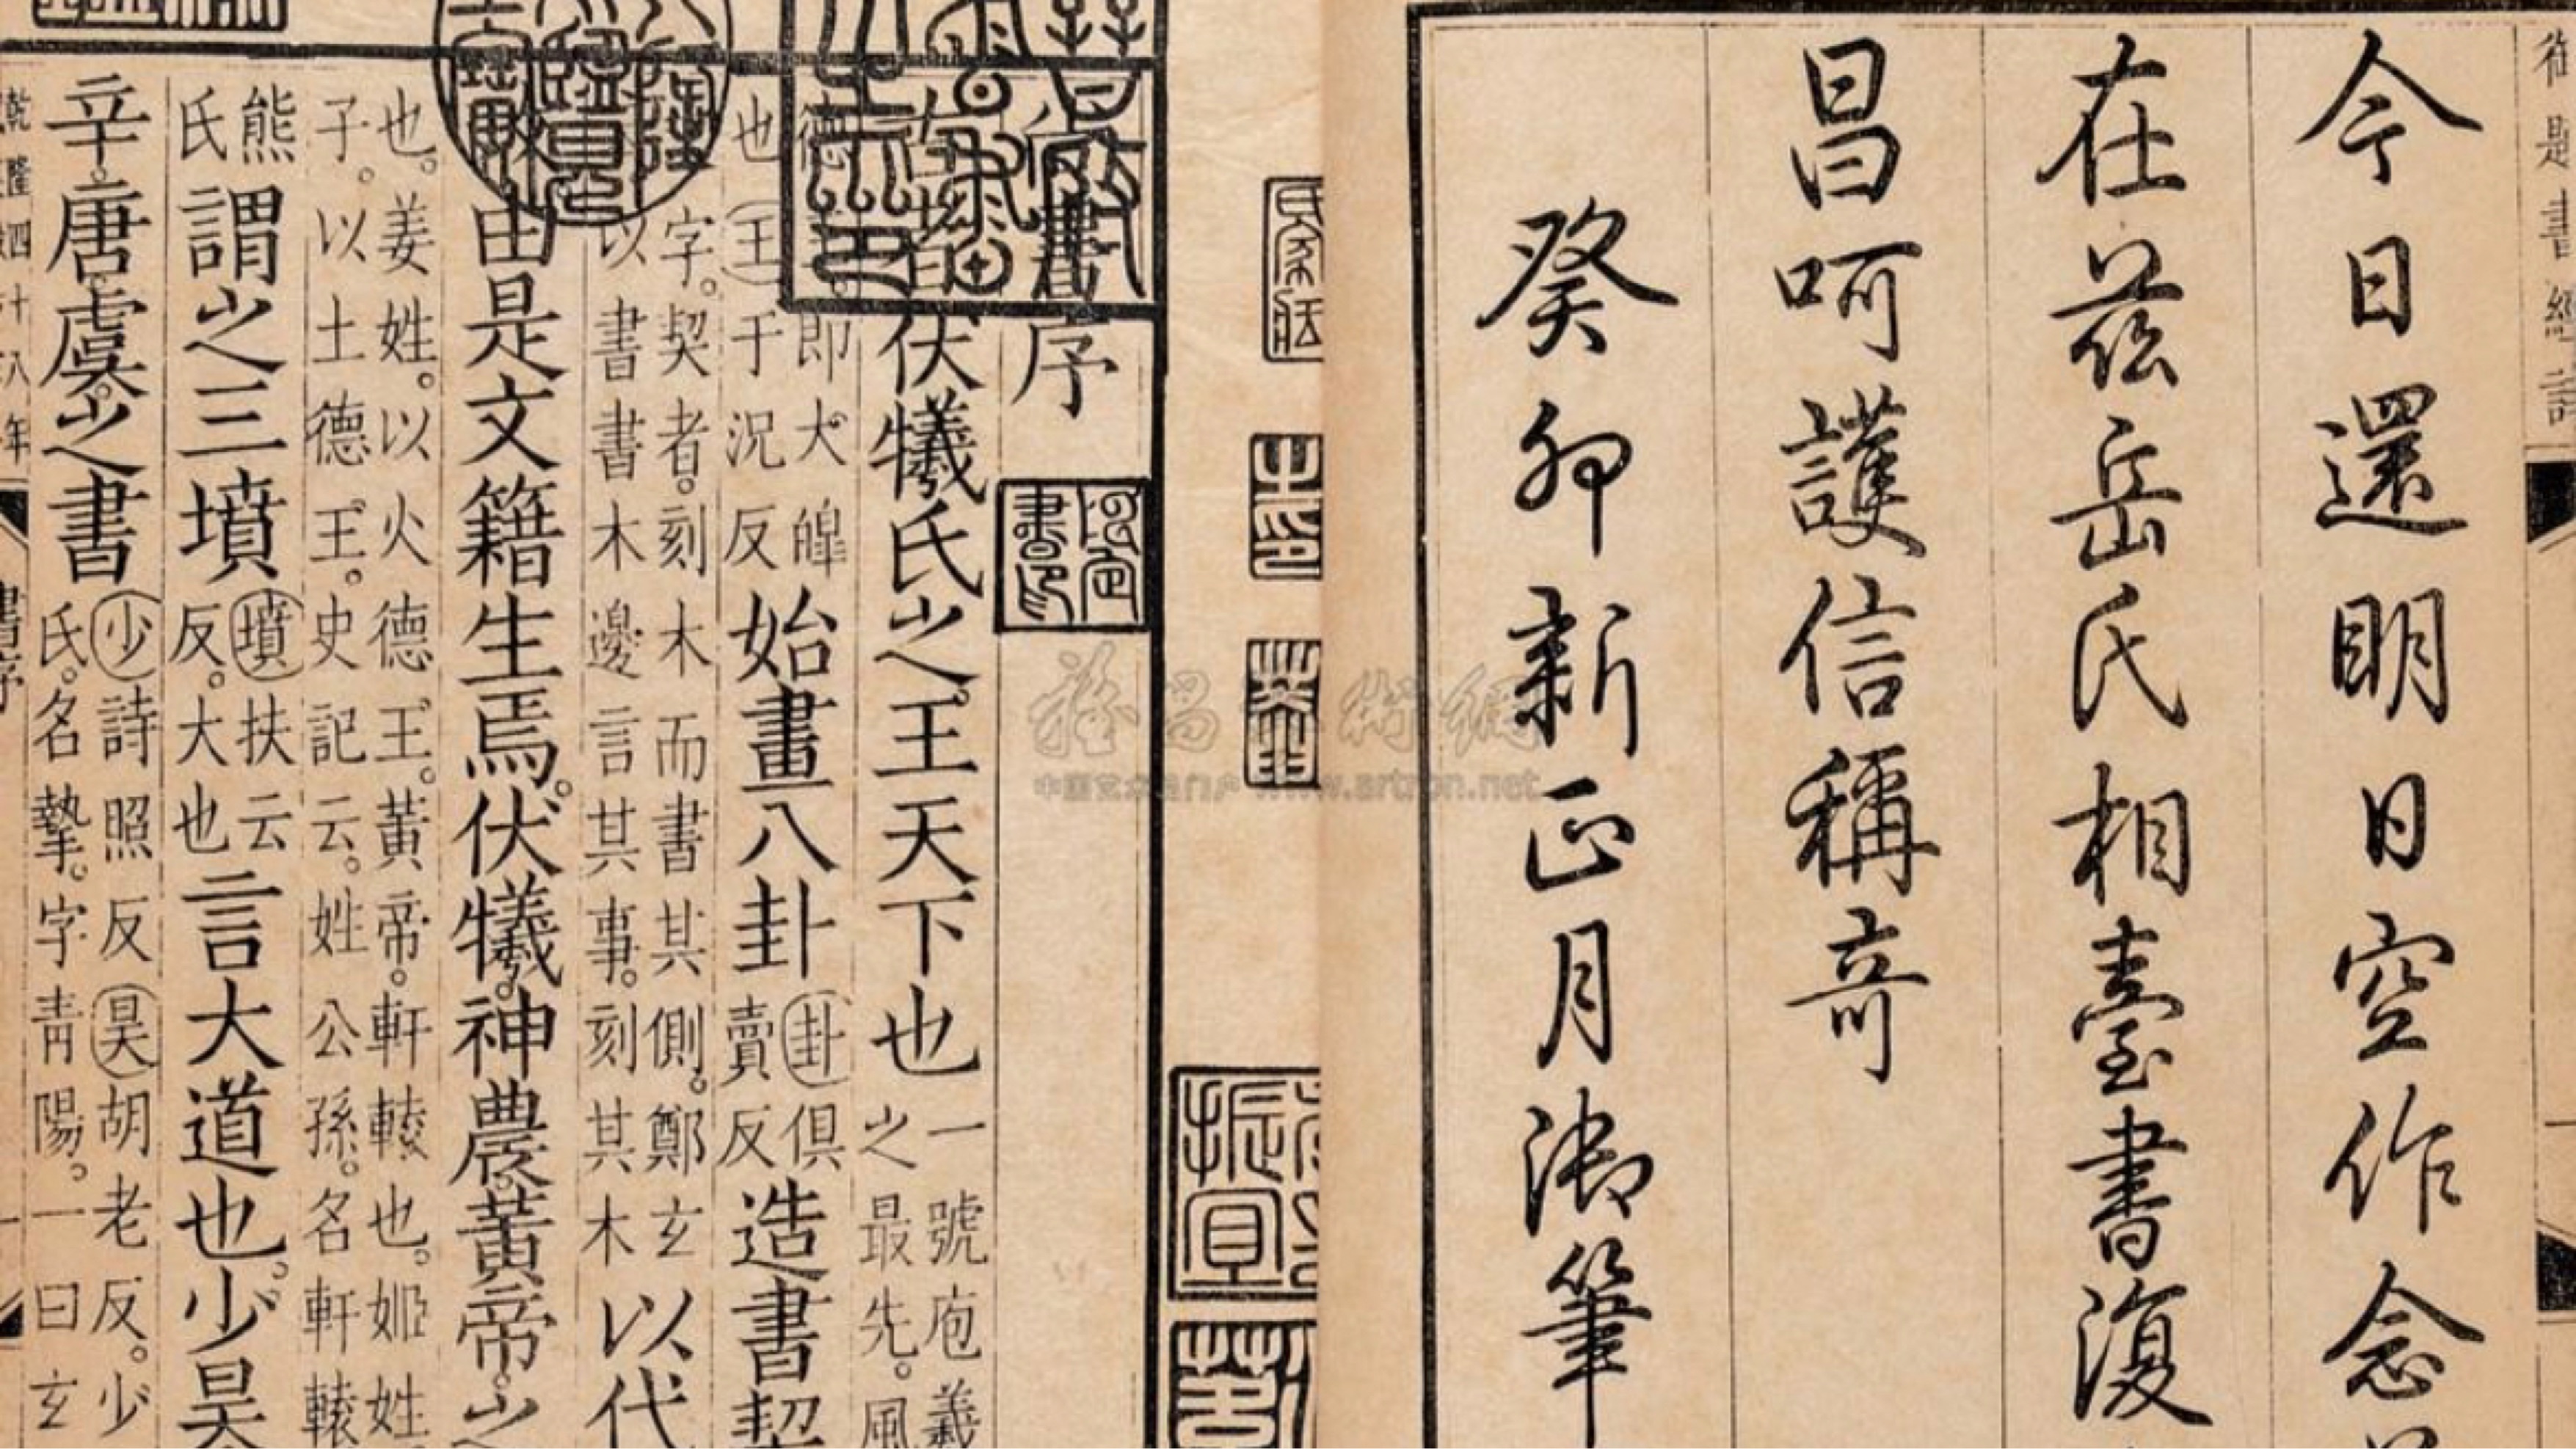 御題書經詩
今日還明日空作念
在茲岳氏相臺書復
昌呵護信稱奇
癸卯新正月御筆
振宜
www.artron.net
書序
古者伏犧氏之王天下也
一號庖羲
之最先。風
即太皥
也(王)于況反
始畫八卦
(卦)俱
賣反
造書契
字。契者。刻木而書其側。鄭玄
以書書木邊言其事。刻其木
以代
由是文籍生焉。伏犧。神農。黃帝。之
也。姜姓。以火德王。黃帝。軒轅也。姬姓
子。以土德王。史記云。姓公孫。名軒轅
熊
氏
謂之三墳
(墳)扶云
反。大也
言大道也。少昊
辛。唐。虞。之書
(少)詩照反(昊)胡老反。少
氏。名摯。字青陽。一曰玄
乾隆四十八年
書序
一